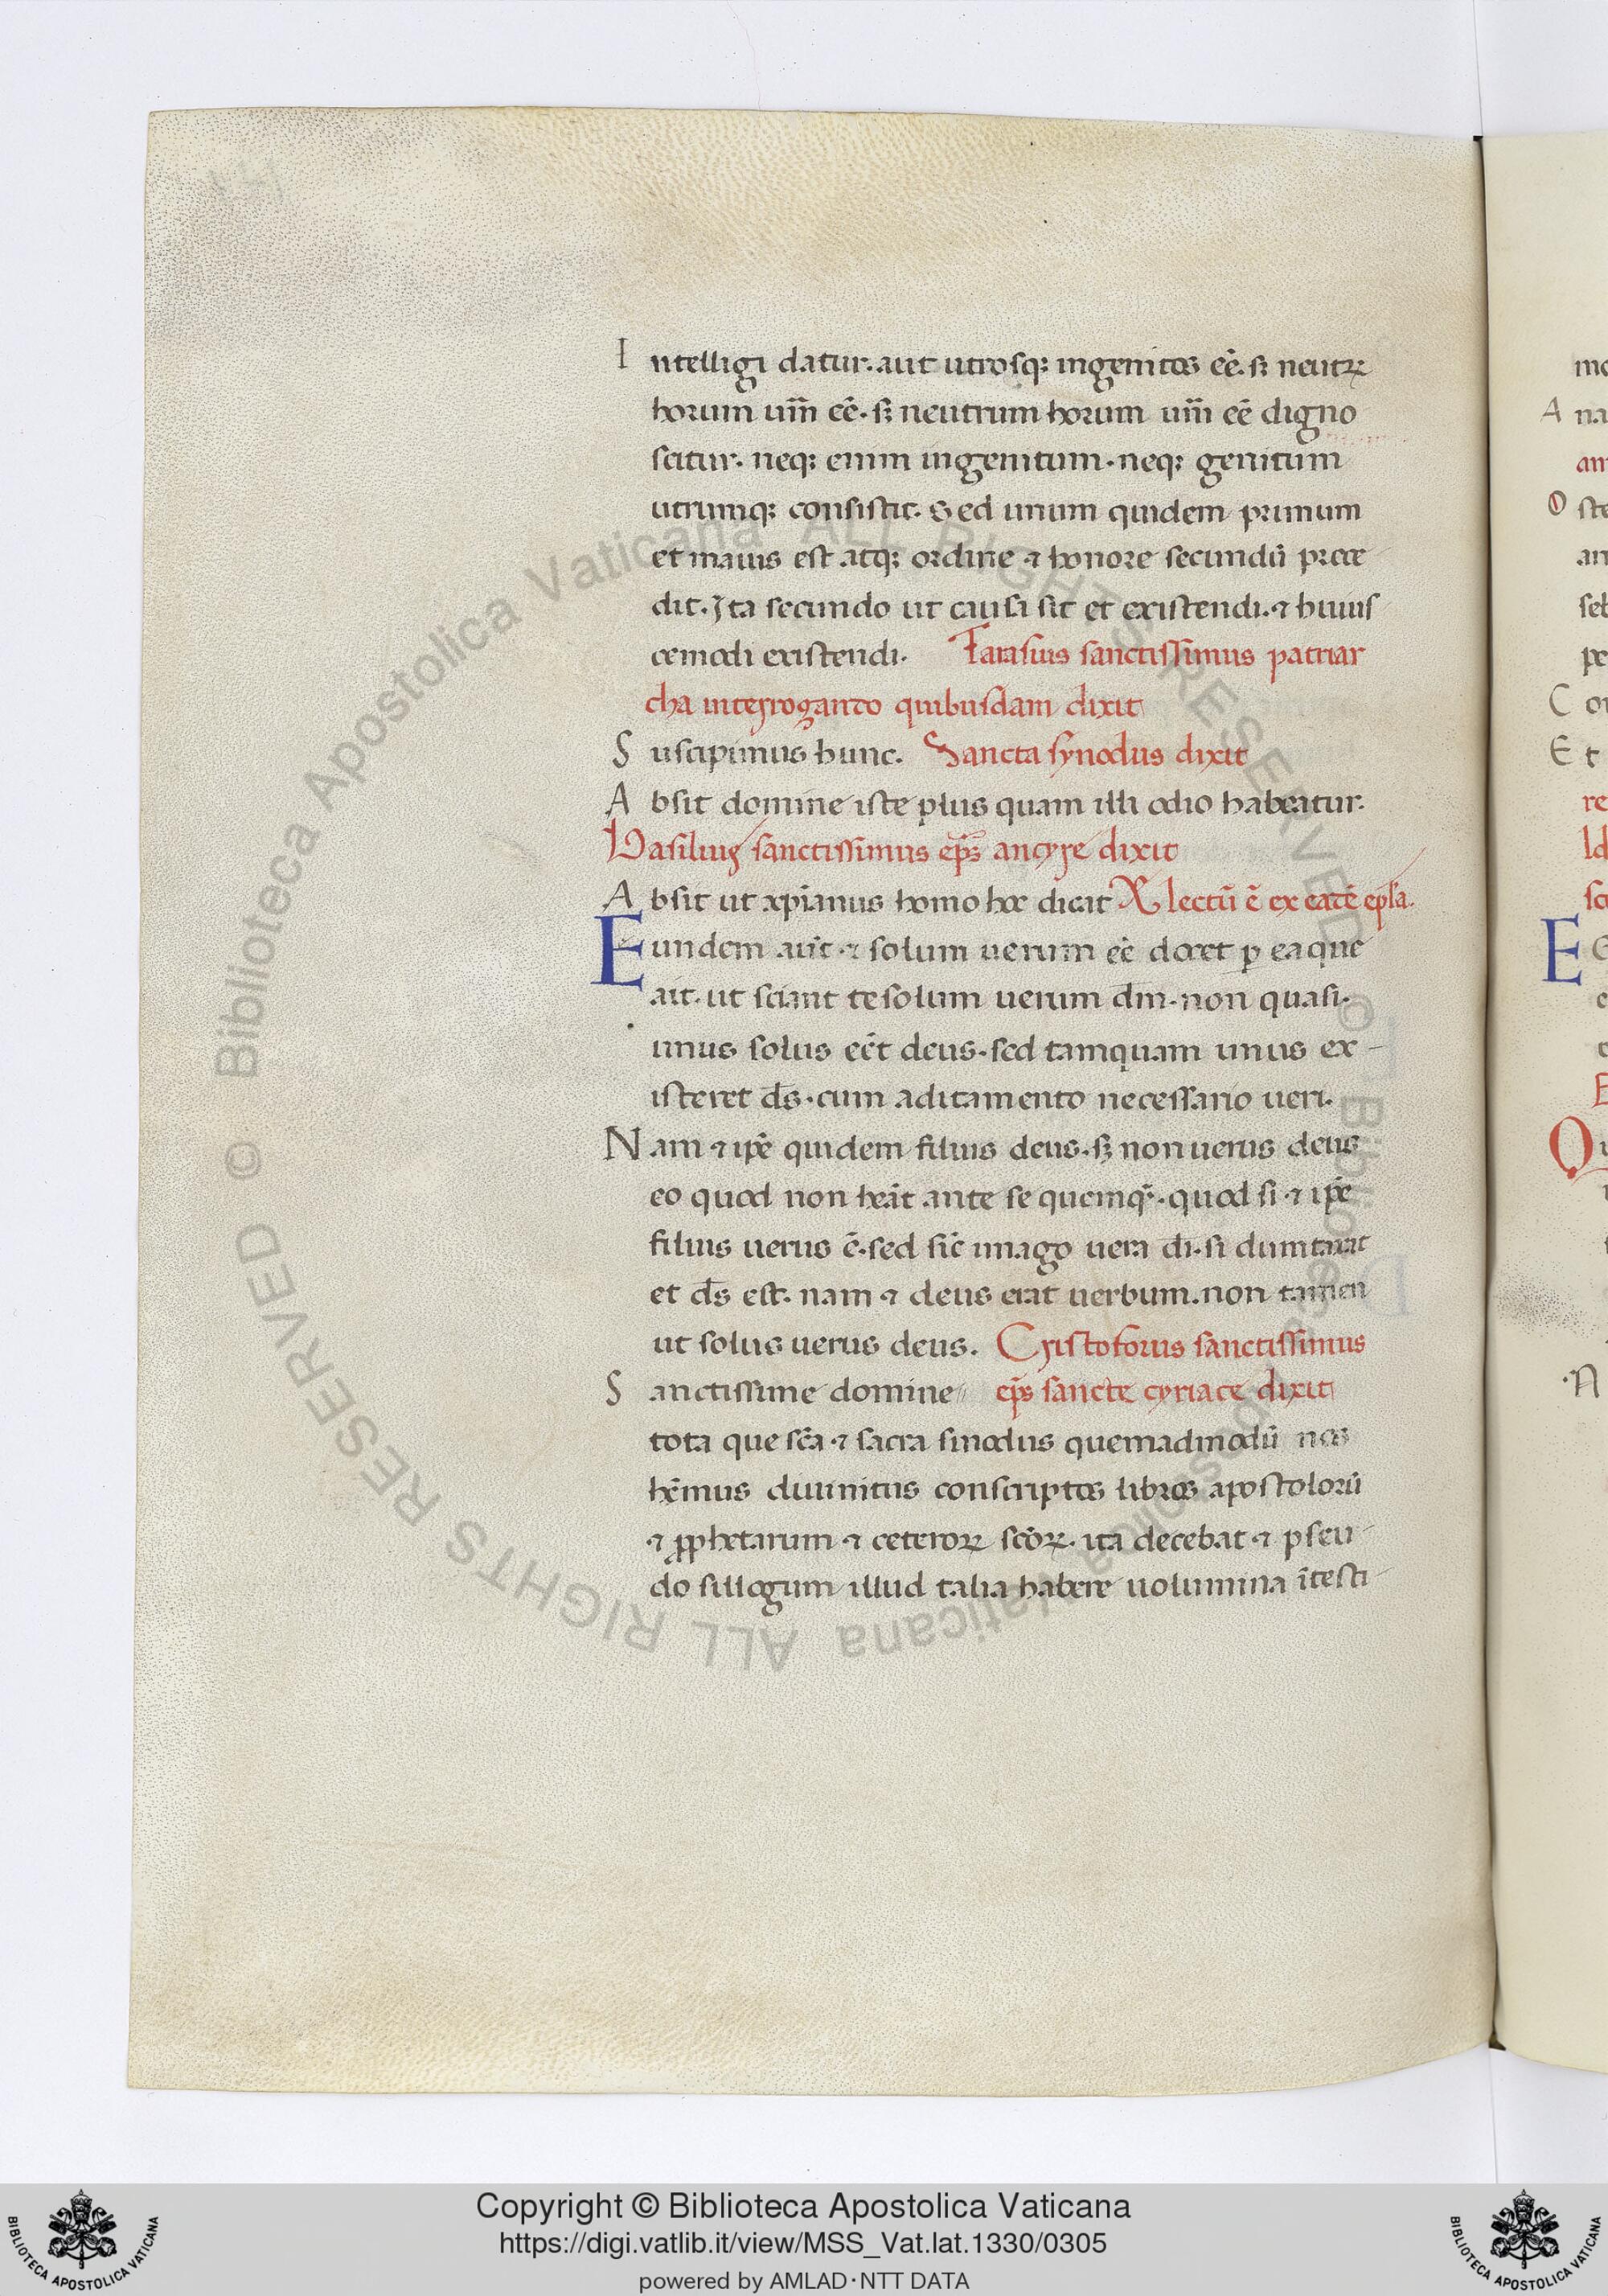 Intelligi datur. aut utrosq; ingenitos eē. sꝫ neutrꝝ
horum um̄ eē. sꝫ neutrum horum um̄ eē digno
scitur. neq; enim ingenitum. neq; genitum
utrumq; consistit. Sed unum quidem primum
et maius est atq; ordine ⁊ honore secundū prece
dit. Ita secundo ut causa sit et existendi. ⁊ huius
cemodi existendi. Tarasius sanctissimus patriar
cha interroganto quibusdam dixit
Suscipimus hunc. Sancta synodus dixit
Absit domine iste plus quam illi odio habeatur.
Basilius sanctissimus ep̄s ancyre dixit
Absit ut xp̄ianus homo hoc dicat lectū ē ex eadē ep̄la.
Eundem aūt ⁊ solum uerum eē docet ꝑ ea que
ait. ut sciant te solum uerum dm̄. non quasi.
unus solus eēt deus. sed tamquam unus ex-
isteret ds̄. cum aditamento necessario ueri.
Nam ⁊ ip̄e quidem filius deus. sꝫ non uerus deus
eo quod non heāt ante se quemq̄. quod si ⁊ ip̄e
filius uerus ē. sed sic̄ imago uera dī. si dumtaxat
et ds̄ est. nam ⁊ deus erat uerbum. non tamen
ut solus uerus deus. Cristoforus sanctissimus
Sanctissime domine ep̄s sancte cyriace dixit
tota que scā ⁊ sacra sinodus quemadmodū nos
hēmus diuinitus conscriptos libros apostolorū
⁊ ꝓphetarum ⁊ ceteroꝝ scōꝝ. ita decebat ⁊ pseu-
do sillogum illud talia habere uolumina ītesti-
Copyright © Biblioteca Apostolica Vaticana
https://digi.vatlib.it/view/MSS_Vat.lat.1330/0305
powered by AMLAD·NTT DATA
© Biblioteca Apostolica Vaticana ALL RIGHTS RESERVED
© Biblioteca Apostolica Vaticana ALL RIGHTS RESERVED
BIBLIOTECA APOSTOLICA VATICANA
BIBLIOTECA APOSTOLICA VATICANA